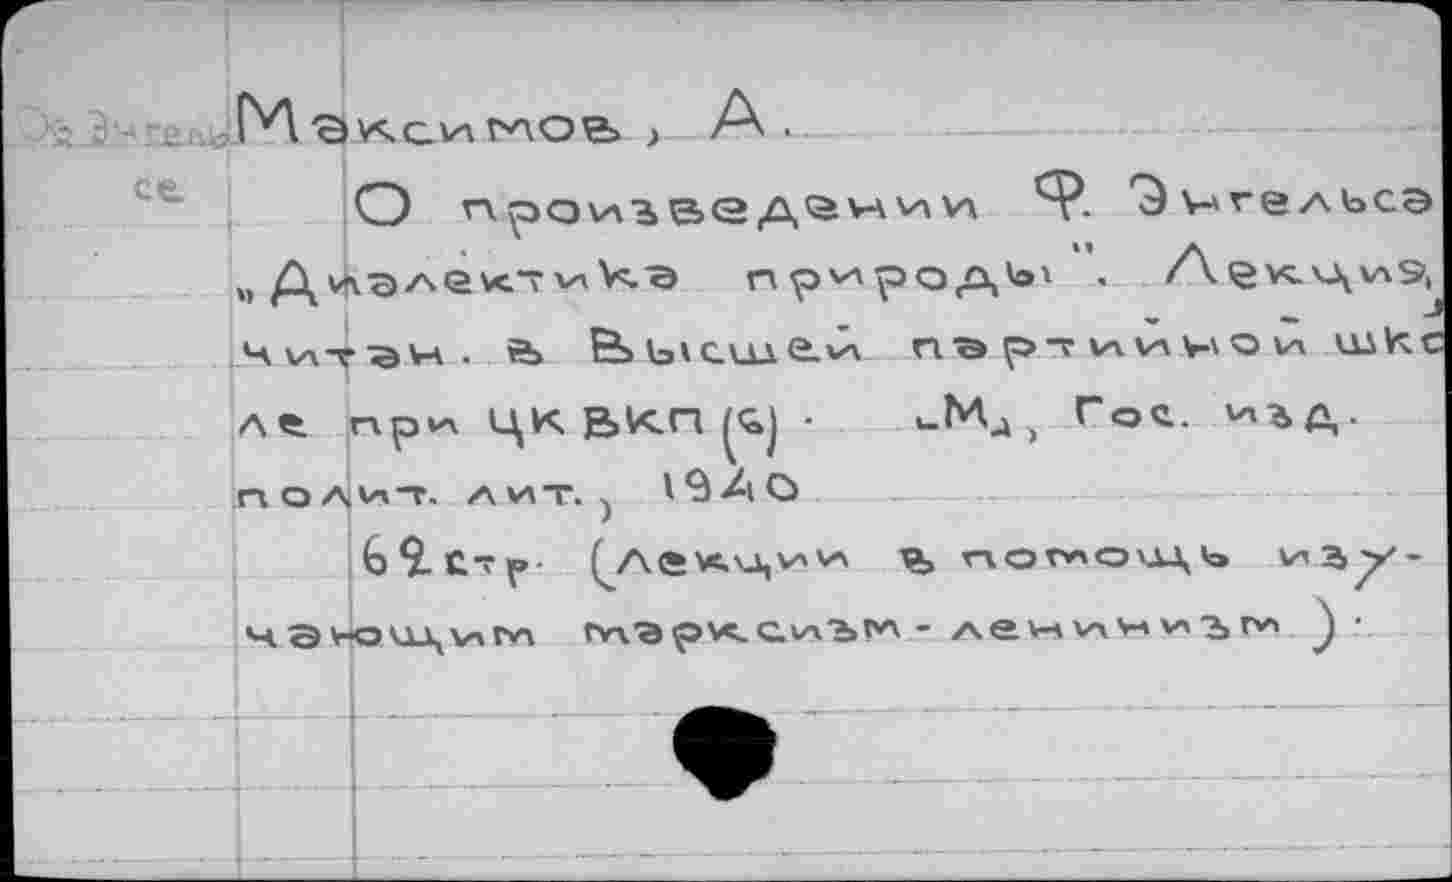 Об Энгель
се
Максимов, А.
О произведении Ф. Энгельса
„Диалектика природы". Лекция,
читан. в Высшей партийной шко
ле при ЦК ВКП(б). -М., Гос. изд.
полит. лит., 1940
62 стр. (Лекции в помощь изу-
чающим марксизм-ленинизм).